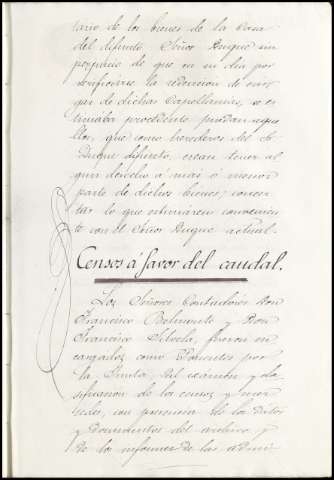 tario de los bienes de la Casa
del difunto Señor Duque sin
perjuicio de que en su dia, por
verificarse la redencion de car
gas de dichas Capellanias, se es
timaba procedente puedan aque
llos, que como herederos del Sr
Duque difunto, crean tener al
gun derecho a mas ó menor
parte de dichos bienes, concer
tar lo que estimaren convenien
te con el Señor Duque actual.
Censos á favor del caudal.
Los Señores Contadores Don
Francisco Belmonte y Don
Francisco Silvela, fueron en
cargados como Ponentes por
la Junta, del examen y cla
sificacion de los censos y mer
cedes, con presencia de los Datos
y Documentos del archivo, y
de los informes de las admi